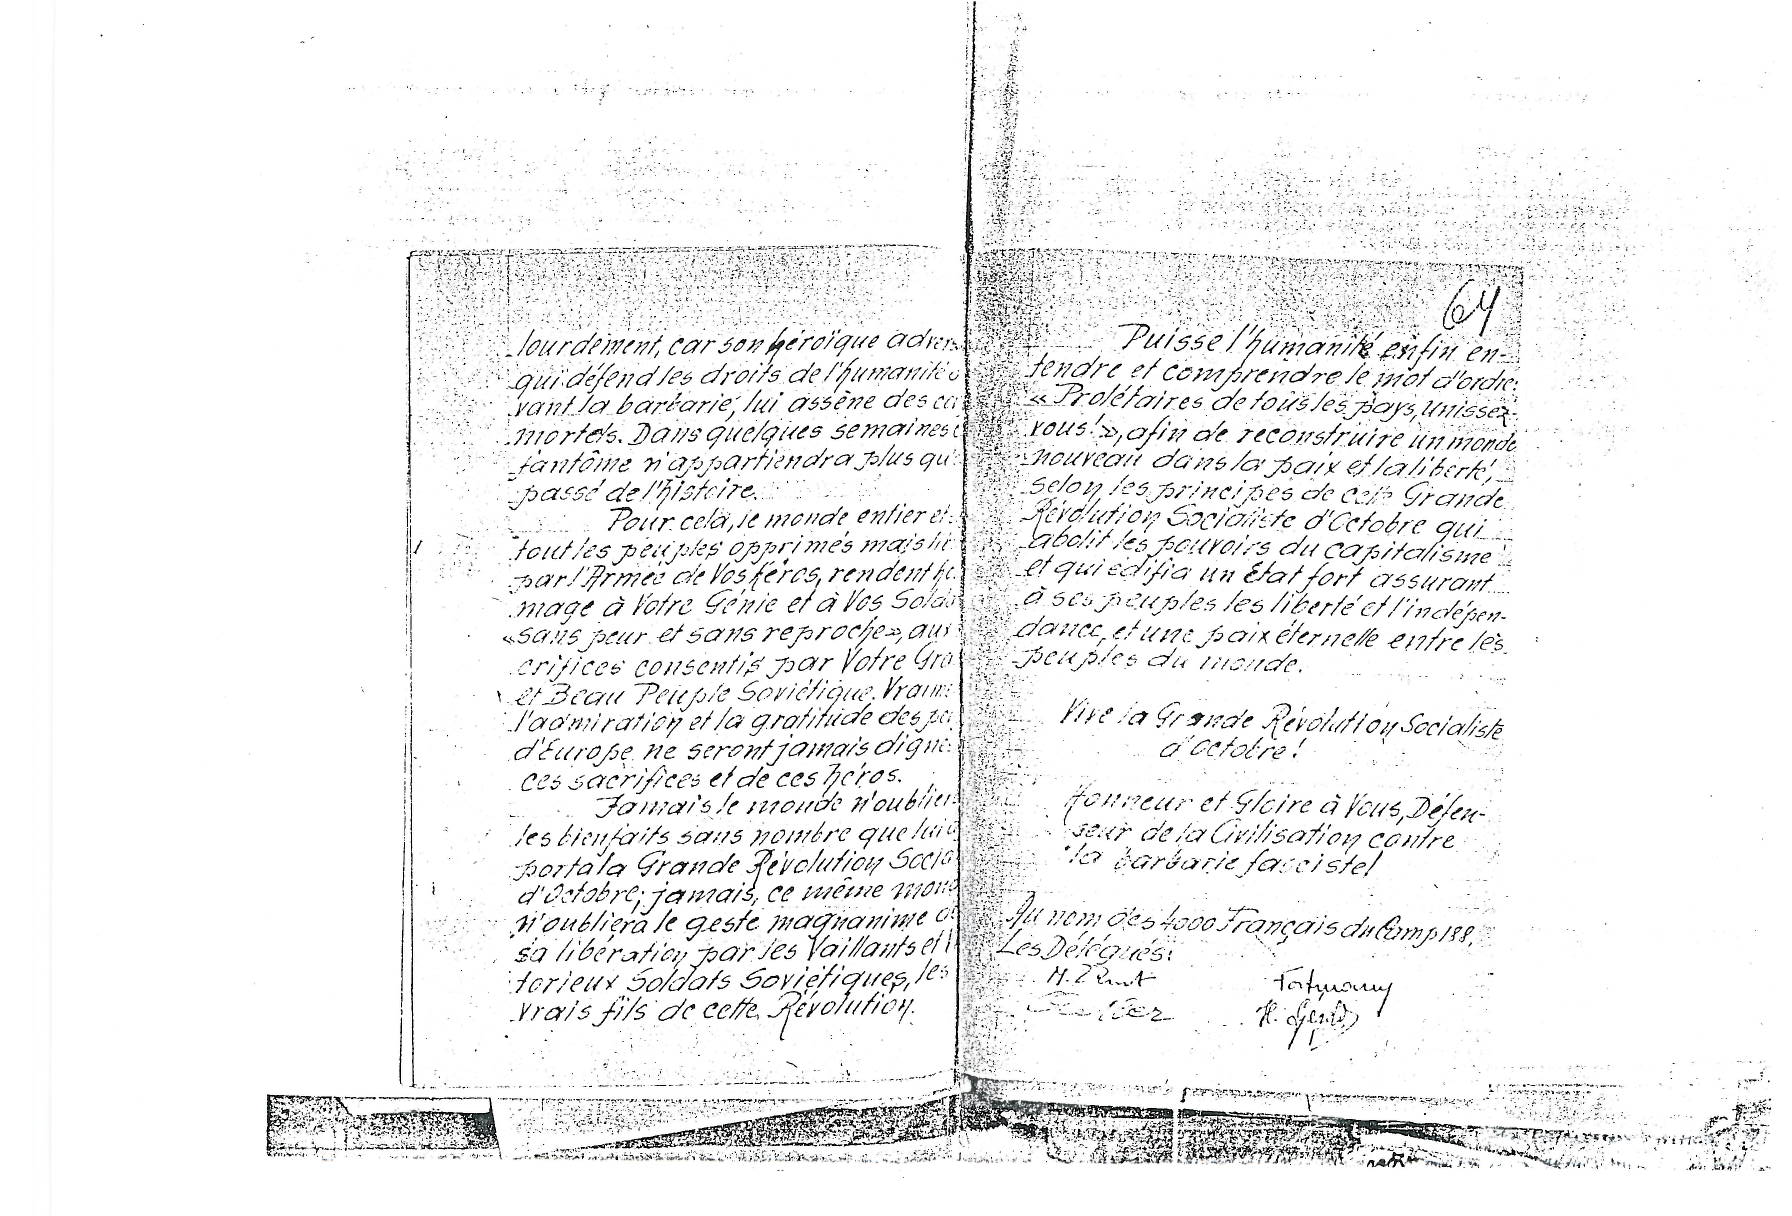 lourdement, car son héroïque advers
qui défend les droits de l'humanité
vant la barbarie, lui assène des co
mortels. Dans quelques semaines
fantôme n'appartiendra plus qu'
passé de l'histoire.
Pour cela, le monde entier et
tout les peuples opprimés mais
par l'Armée de Vos Héros, rendent
mage à Votre Génie et à Vos Solda
«sans peur et sans reproche», aux
crifices consentis par Votre Gra
et Beau Peuple Soviétique. Vraime
l'admiration et la gratitude des pe
d'Europe ne seront jamais digne
ces sacrifices et de ces héros.
Jamais le monde n'oublier
les bienfaits sans nombre que lui
porta la Grande Révolution Socia
d'Octobre; jamais, ce même mond
n'oubliera le geste magnanime d
sa libération par les Vaillants et
torieux Soldats Soviétiques, les
vrais fils de cette Révolution.
64
Puisse l'humanité enfin en-
tendre et comprendre le mot d'ordre:
« Prolétaires de tous les pays, Unissez-
vous!», afin de reconstruire un monde
nouveau dans la paix et la liberté,
selon les principes de cette Grande
Révolution Socialiste d'Octobre qui
abolit les pouvoirs du capitalisme
et qui édifia un État fort assurant
à ses peuples les liberté et l'indépen-
dance, et une paix éternelle entre les
peuples du monde.
Vive la Grande Révolution Socialiste
d'Octobre!
Honneur et Gloire à Vous, Défen-
seur de la Civilisation contre
la barbarie fasciste!
Au nom des 4000 Français du Camp 188.
Les Délégués: